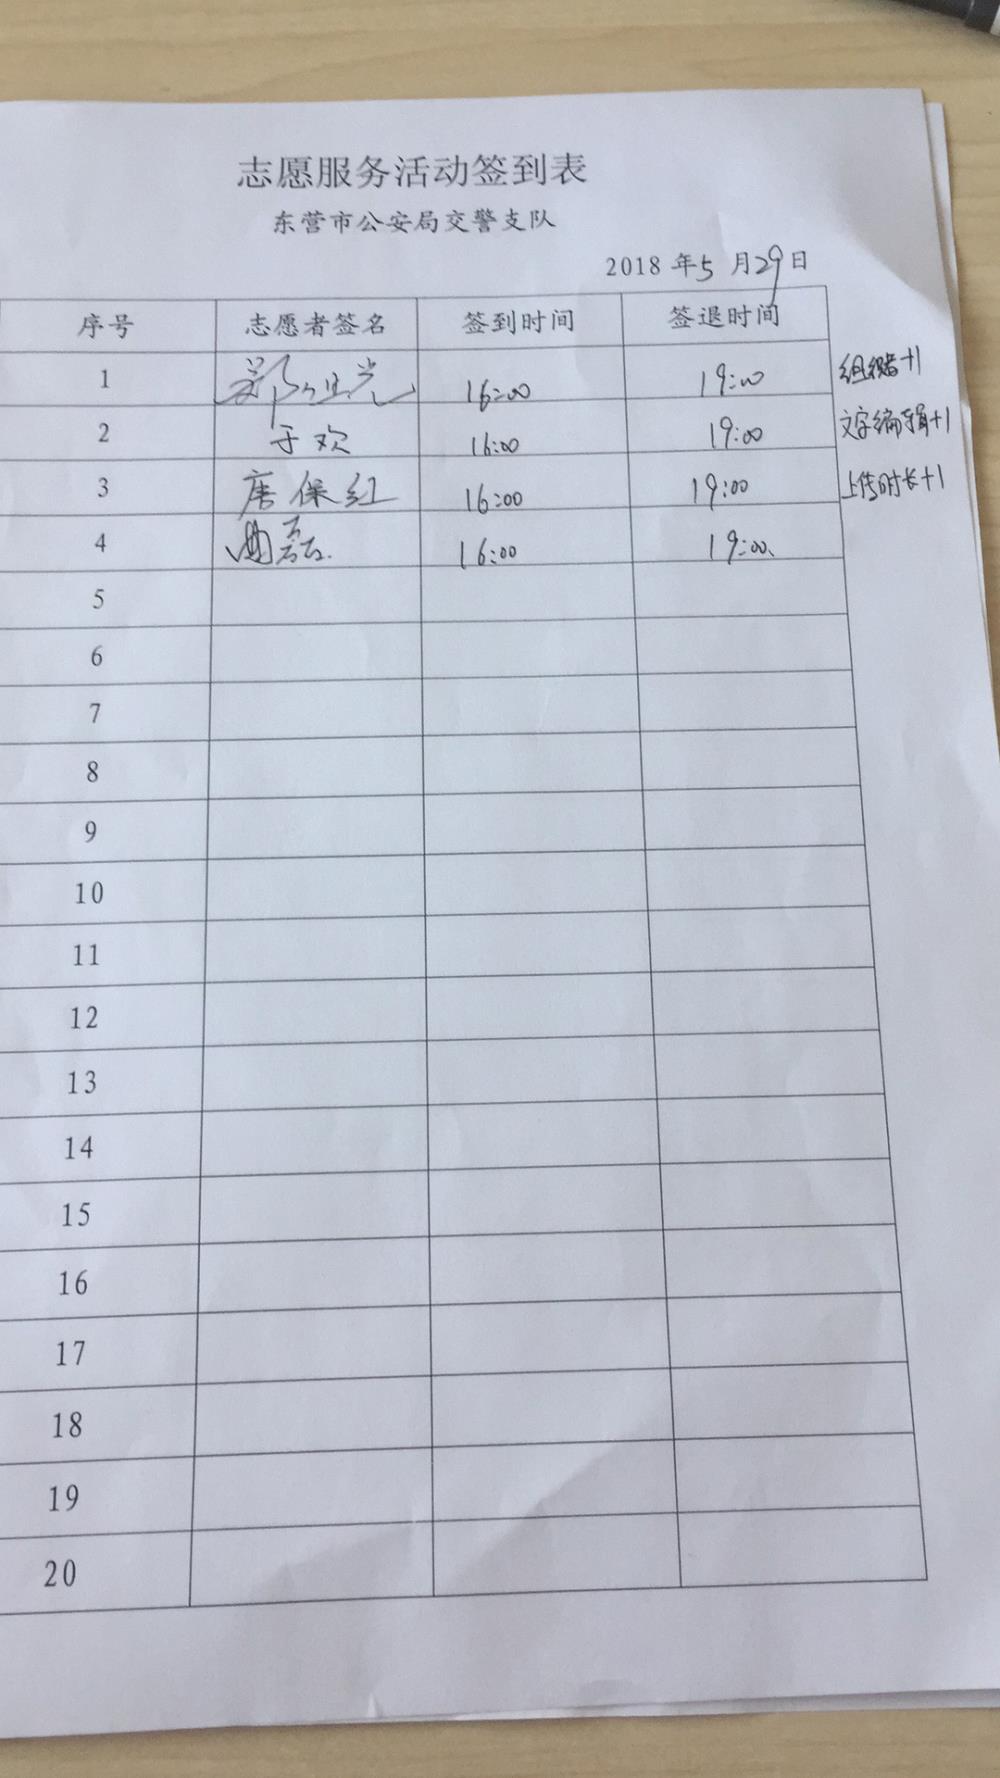 志愿服务活动签到表
东营市公安局交警支队
2018 年 5 月 29 日
序号 志愿者签名 签到时间 签退时间
1 16:00 19:00 组织者+1
2 于欢 16:00 19:00 文字编辑+1
3 唐保红 16:00 19:00 上传时长+1
4 曲磊 16:00 19:00
5
6
7
8
9
10
11
12
13
14
15
16
17
18
19
20